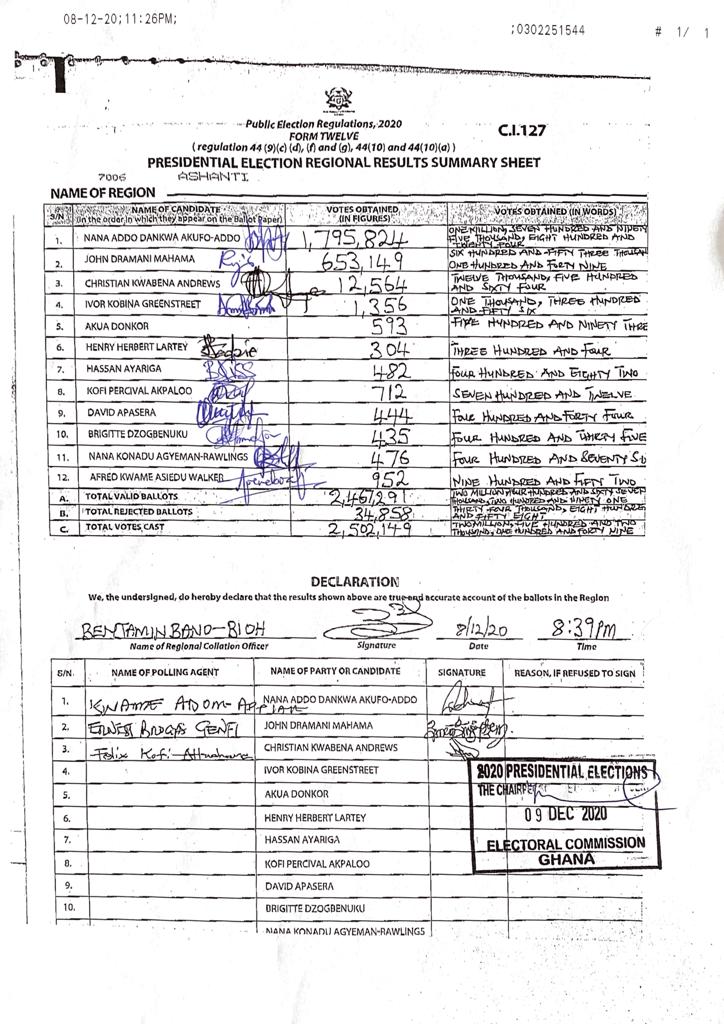 08-12-20;11:26PM;
;0302251544
# 1/ 1
Public Election Regulations, 2020
FORM TWELVE
C.I.127
( regulation 44 (9)(c) (d), (f) and (g), 44(10) and 44(10)(a) )
PRESIDENTIAL ELECTION REGIONAL RESULTS SUMMARY SHEET
7006 ASHANTI
NAME OF REGION
S/N NAME OF CANDIDATE (in the order in which they appear on the Ballot Paper) VOTES OBTAINED (IN FIGURES) VOTES OBTAINED (IN WORDS)
1. NANA ADDO DANKWA AKUFO-ADDO 1,795,824 ONE MILLION, SEVEN HUNDRED AND NINETY FIVE THOUSAND, EIGHT HUNDRED AND TWENTY FOUR
2. JOHN DRAMANI MAHAMA 653,149 SIX HUNDRED AND FIFTY THREE THOUSAN ONE HUNDRED AND FORTY NINE
3. CHRISTIAN KWABENA ANDREWS 12,564 TWELVE THOUSAND, FIVE HUNDRED AND SIXTY FOUR
4. IVOR KOBINA GREENSTREET 1,356 ONE THOUSAND, THREE HUNDRED AND FIFTY SIX
5. AKUA DONKOR 593 FIVE HUNDRED AND NINETY THRE
6. HENRY HERBERT LARTEY 304 THREE HUNDRED AND FOUR
7. HASSAN AYARIGA 482 FOUR HUNDRED AND EIGHTY TWO
8. KOFI PERCIVAL AKPALOO 712 SEVEN HUNDRED AND TWELVE
9. DAVID APASERA 444 FOUR HUNDRED AND FORTY FOUR
10. BRIGITTE DZOGBENUKU 435 FOUR HUNDRED AND THIRTY FIVE
11. NANA KONADU AGYEMAN-RAWLINGS 476 FOUR HUNDRED AND SEVENTY SI
12. AFRED KWAME ASIEDU WALKER 952 NINE HUNDRED AND FIFTY TWO
A. TOTAL VALID BALLOTS 2,467,291 TWO MILLION, FOUR HUNDRED AND SIXTY SEVEN THOUSAND, TWO HUNDRED AND NINETY ONE
B. TOTAL REJECTED BALLOTS 34,858 THIRTY FOUR THOUSAND, EIGHT HUNDRED AND FIFTY EIGHT
C. TOTAL VOTES CAST 2,502,149 TWO MILLION, FIVE HUNDRED AND TWO THOUSAND, ONE HUNDRED AND FORTY NINE
DECLARATION
We, the undersigned, do hereby declare that the results shown above are true and accurate account of the ballots in the Region
BENJAMIN BANO-BIOH 8/12/20 8:39PM
Name of Regional Collation Officer Signature Date Time
S/N. NAME OF POLLING AGENT NAME OF PARTY OR CANDIDATE SIGNATURE REASON, IF REFUSED TO SIGN
1. KWAME ADOM-APPIAH NANA ADDO DANKWA AKUFO-ADDO
2. JOHN DRAMANI MAHAMA
3. Felix Kofi CHRISTIAN KWABENA ANDREWS
4. IVOR KOBINA GREENSTREET
5. AKUA DONKOR
6. HENRY HERBERT LARTEY
7. HASSAN AYARIGA
8. KOFI PERCIVAL AKPALOO
9. DAVID APASERA
10. BRIGITTE DZOGBENUKU
NANA KONADU AGYEMAN-RAWLINGS
2020 PRESIDENTIAL ELECTIONS
THE CHAIRPE
09 DEC 2020
ELECTORAL COMMISSION
GHANA